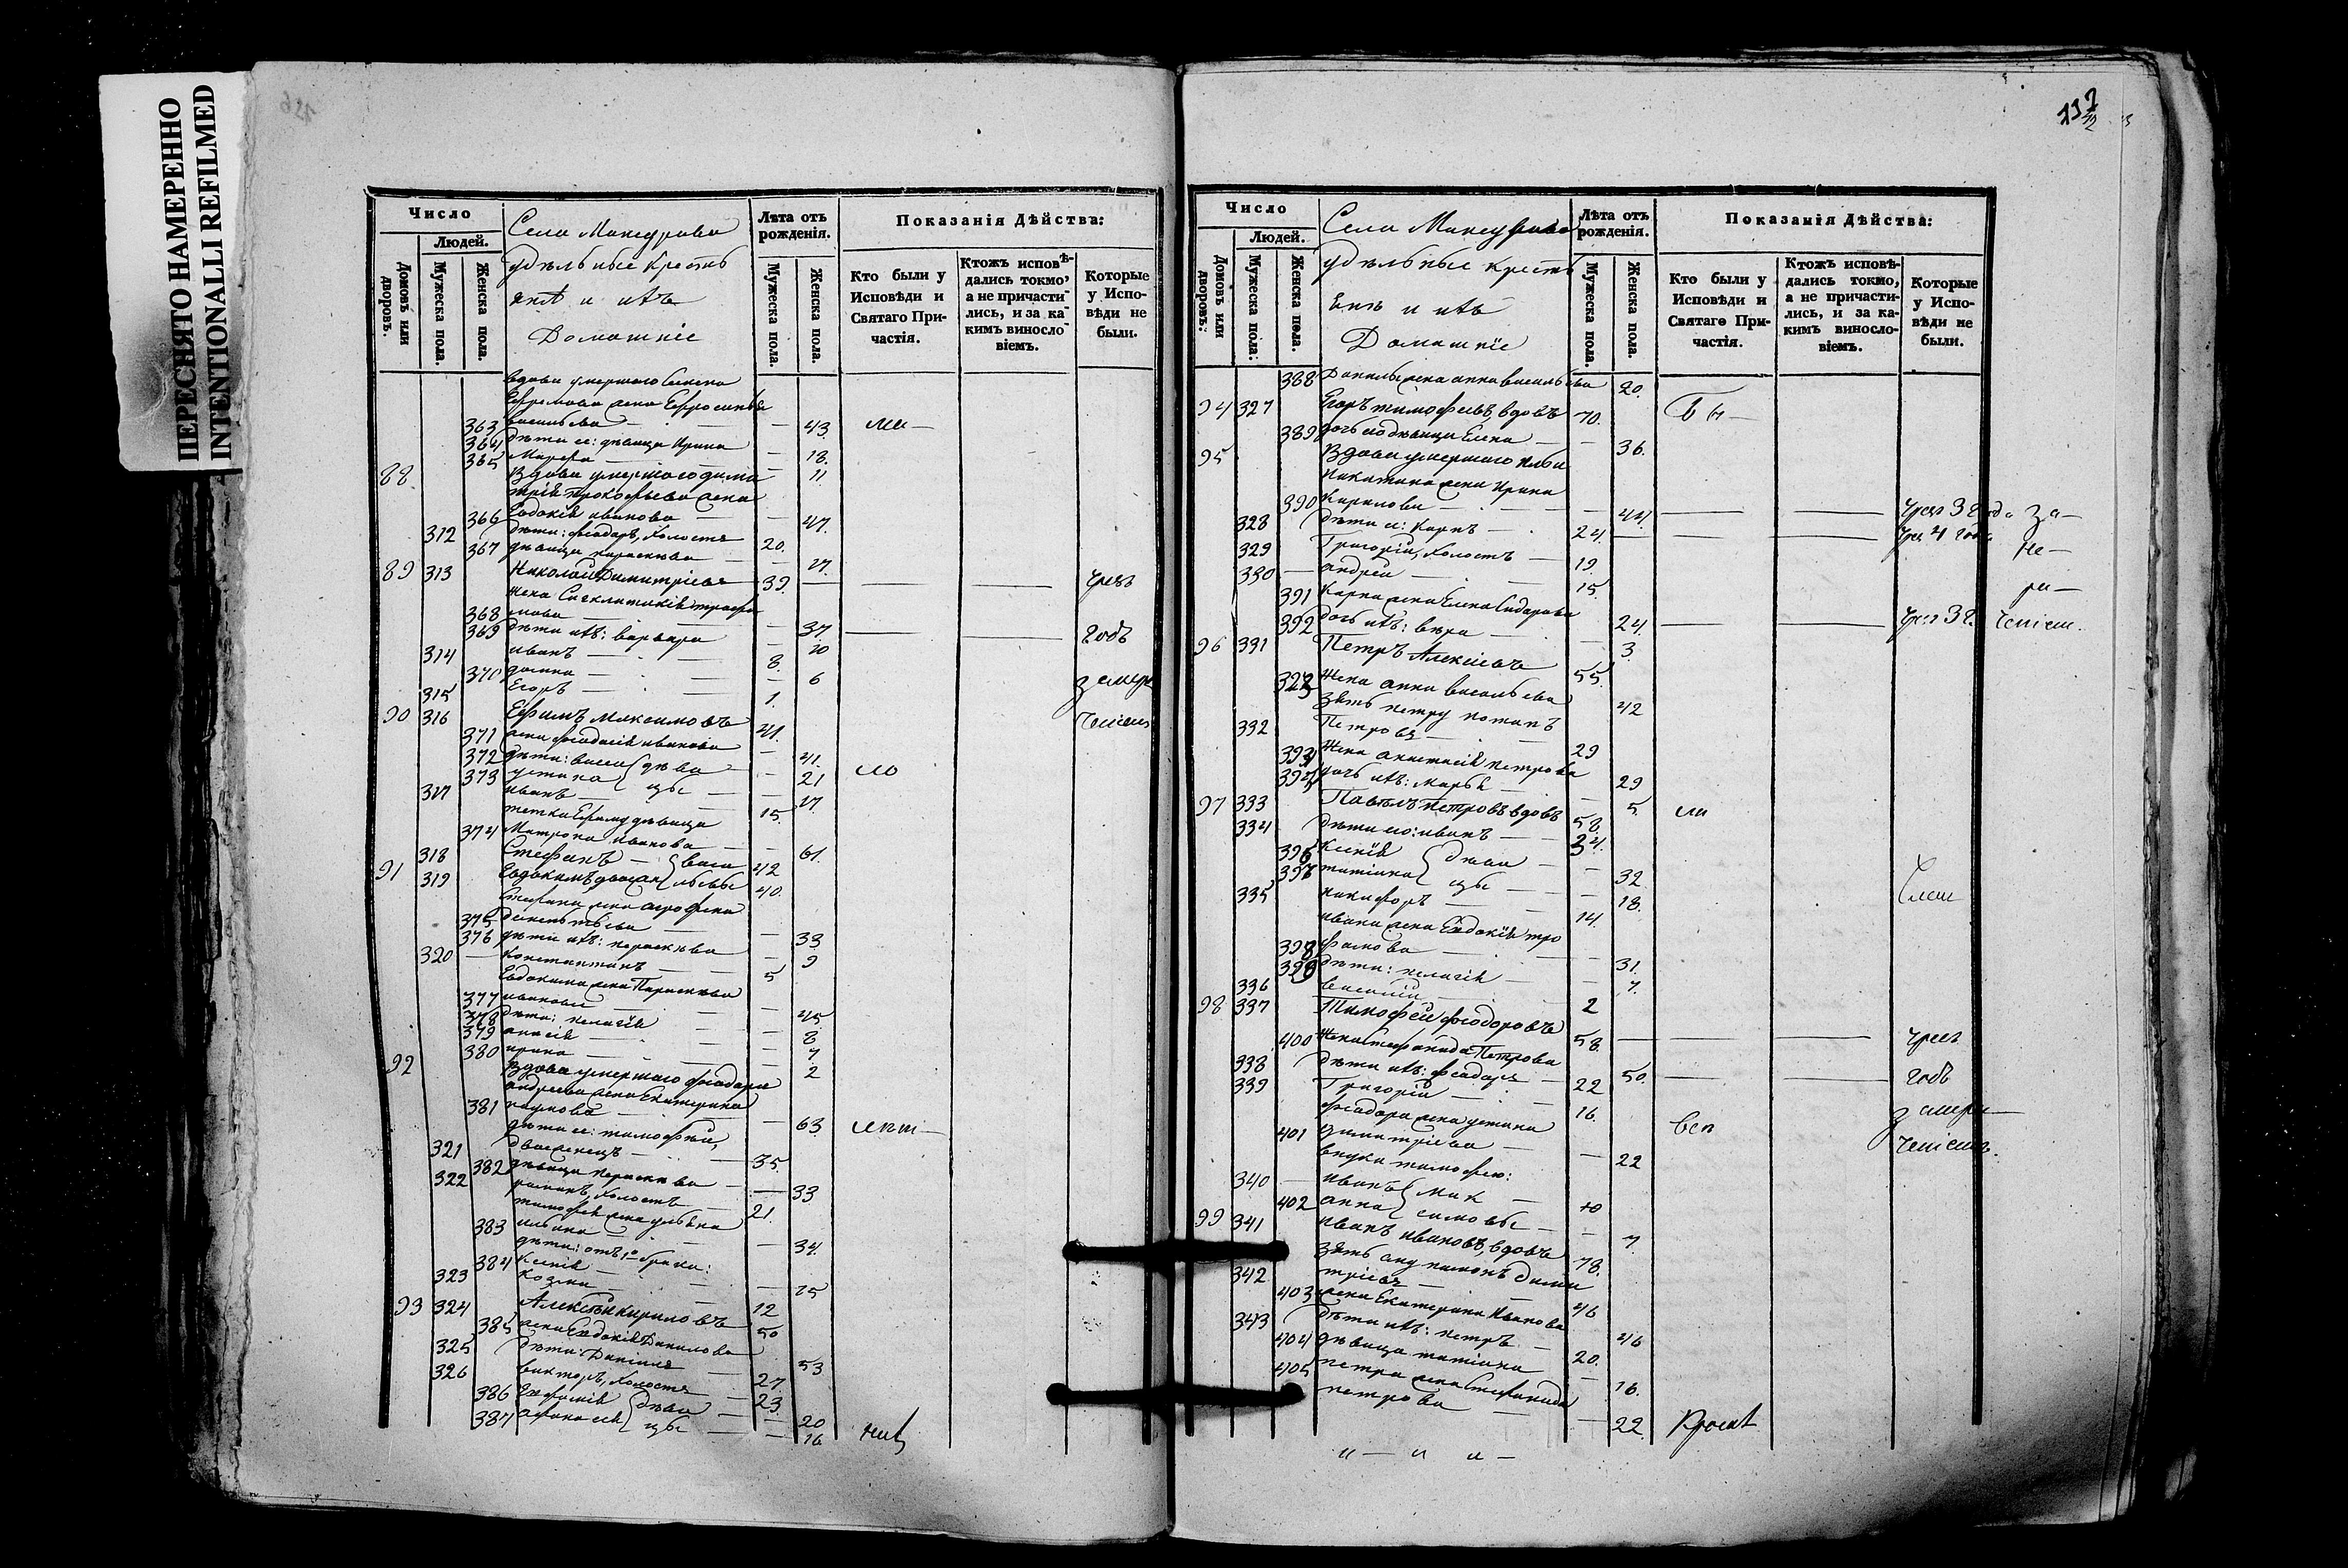 ПЕРЕСНЯТО НАМЕРЕННО
INTENTIONALLI REFILMED
Число
Людей.
Домовъ или дворовъ.
Мужеска пола.
Женска пола.
Села
удѣльные крестья
янѣ и ихъ
Домашніе
Лѣта отъ рожденія.
Мужеска пола.
Женска пола.
Показанія Дѣйства:
Кто были у Исповѣди и Святаго Причастія.
Ктожъ исповѣдались токмо, а не причастились, и за какимъ винословіемъ.
Которые у Исповѣди не были.
вдова умершаго
Ефремова жена Ефросинья
363 Васильева 43
364 дѣти ее: дѣвица Ирина 18.
365 Марѳа 11
88 Вдова умершаго Дими
трія Прокофьева жена
366 Евдокія Иванова 47.
312 дѣти: Ѳеодоръ, холостъ 20.
367 дѣвица Параскева 17.
89 313 Николай Димитріевъ 39. чрезъ
жена Синклитикія Трофи
368 мова 37 годъ
369 дѣти ихъ: Варвара 10
314 Иванъ 8.
370 Домна 6
315 Егоръ 1.
90 316 Ефимъ Максимовъ 41.
371 жена Ѳеодосія Иванова 41.
372 дѣти: Васса дѣви 21
373 Устина цы 17.
317 Иванъ 15
тетка Ефиму дѣвица
374 Матрона Иванова 61.
318 Стефанъ Васи 42
91 319 Евдокимъ льевы 40.
Стефана жена Агрофена
375 33
376 дѣти ихъ: Параскева 9
320 Константинъ 5
Евдокима жена Параскева
377 Иванова 45
378 дѣти: Пелагія 8
379 7
380 Ирина 2
92 Вдова умершаго Ѳеодора
Андреева жена Екатерина
381 63
дѣти ее: Тимофей,
321 двоеженецъ 35
382 дѣвица Параскева 33
322 Романъ, холостъ 21.
Тимофея жена Ульяна
383 Ильина 34.
дѣти: отъ 1го брака:
384 Ксенія 15
323 Козма 12
93 324 Алексѣй Кириловъ 50
385 жена Евдокія Данилова 53
325 дѣти: Даніилъ 27.
326 Викторъ, холостъ 23.
386 Евфимія дѣви 20
387 Афанасія цы 16
137
Число
Людей.
Домовъ или дворовъ.
Мужеска пола:
Женска пола.
Села
удѣльные крестья
янѣ и ихъ
Домашніе
Лѣта отъ рожденія.
Мужеска пола.
Женска пола.
Показанія Дѣйства:
Кто были у Исповѣди и Святаго Причастія.
Ктожъ исповѣдались токмо, а не причастились, и за какимъ винословіемъ.
Которые у Исповѣди не были.
388 Данилы жена Анна Васильева 20.
94 327 Егоръ Тимофеевъ, вдовъ 70.
389 дочь его дѣвица Елена 36.
95 Вдова умершаго Ильи
Никитина жена Ирина
390 Кирилова 44. чрез 3 года за-
328 дѣти ее: Карпъ 24 чрез 4 года не-
329 Григорій, холостъ 19.
330 Андрей 15. ра-
391 Карпа жена Елена Сидорова 24. чрез 3 г. ченіем.
392 дочь ихъ: Вѣра 3.
96 331 Петръ Алексіевъ 55.
393 Жена Анна Васильева 42
зять Петру Потапъ
332 Петровъ 29
394 Жена Анастасія Петрова 29
395 дочь ихъ: Марья 5.
97 333 Павелъ Петровъ вдовъ 58.
334 дѣти его: Иванъ 34.
396 Ксенія дѣви 32.
397 Татіана цы 18.
335 Никифоръ 14.
Ивана жена Евдокія Тро
398 фимова 31.
399 дѣти: Пелагія 7.
336 Василій 2
98 337 Тимофей Ѳеодоровъ 58. чрезъ
400 Жена Степанида Петрова 50. годъ
338 дѣти ихъ: Ѳеодоръ 22
339 Григорій 16.
Ѳеодора жена Устина
401 Димитріева 22
внуки Тимофею:
340 Иванъ Мак 10
402 Анна симовы 7.
99 341 Иванъ Ивановъ, вдовъ 78.
зять ему Дими
342 тріевъ 46
403 жена Екатерина Иванова 46
343 дѣти ихъ: Петръ 20.
404 дѣвица Татіана 16.
405 Петра жена Степанида
Петрова 22.